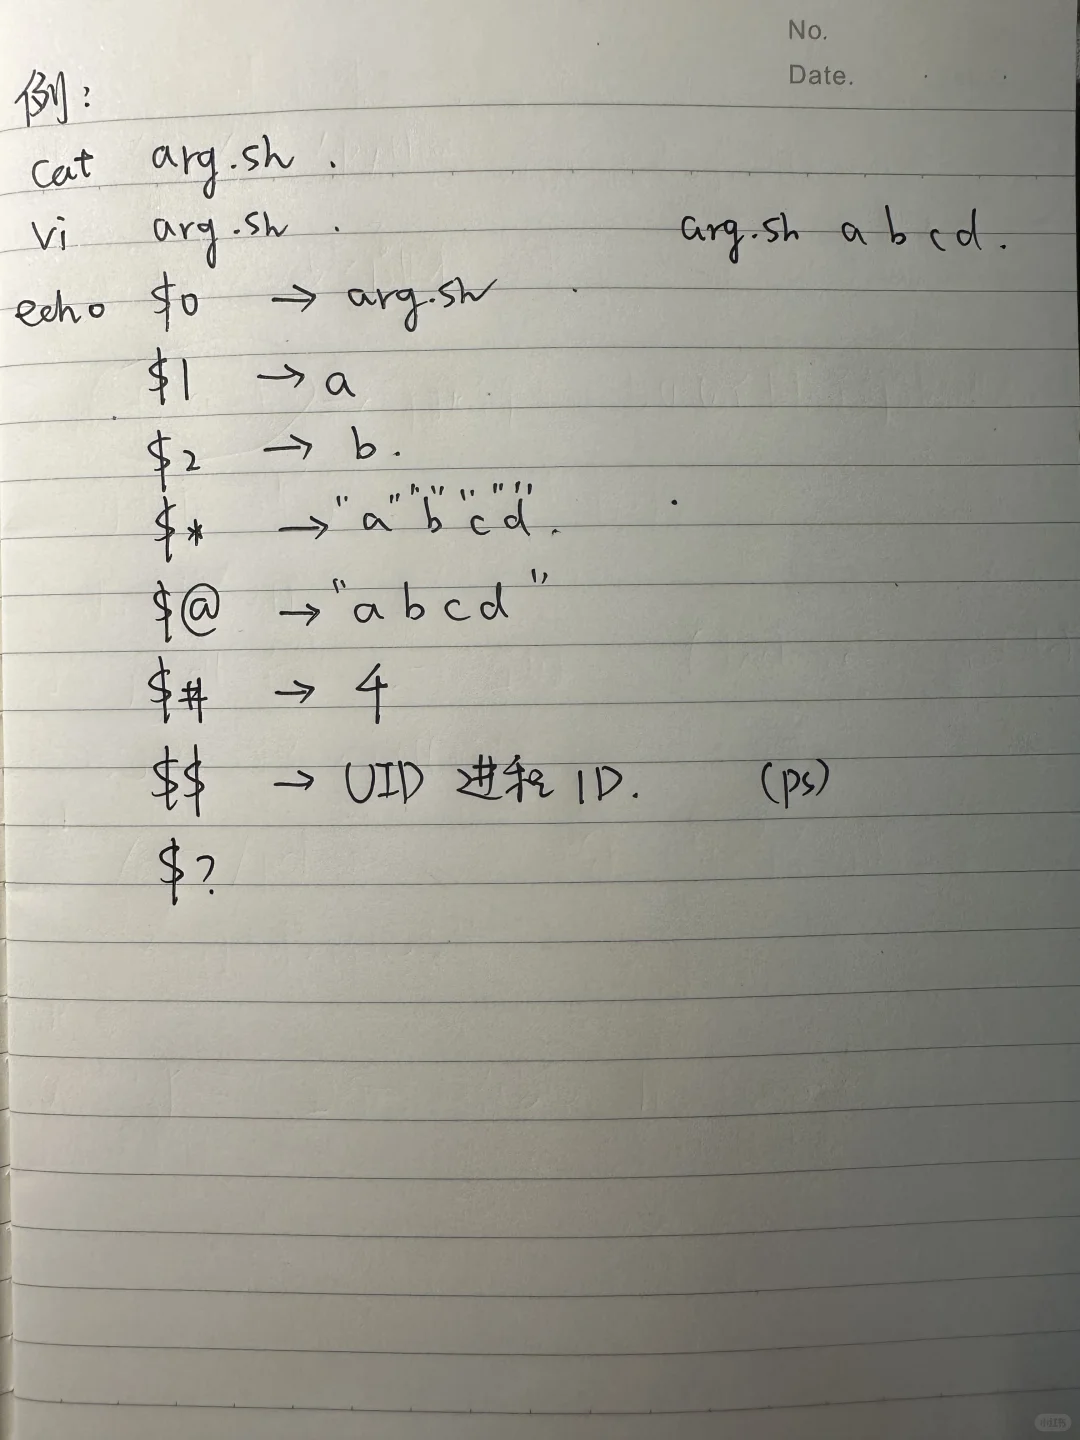 No.
Date.
例:
cat arg.sh .
vi arg.sh . arg.sh a b c d .
echo $0 → arg.sh
$1 → a
$2 → b.
$* → "a" "b" "c" "d".
$@ → "a b c d"
$# → 4
$$ → UID 进程 ID. (ps)
$?
小红书